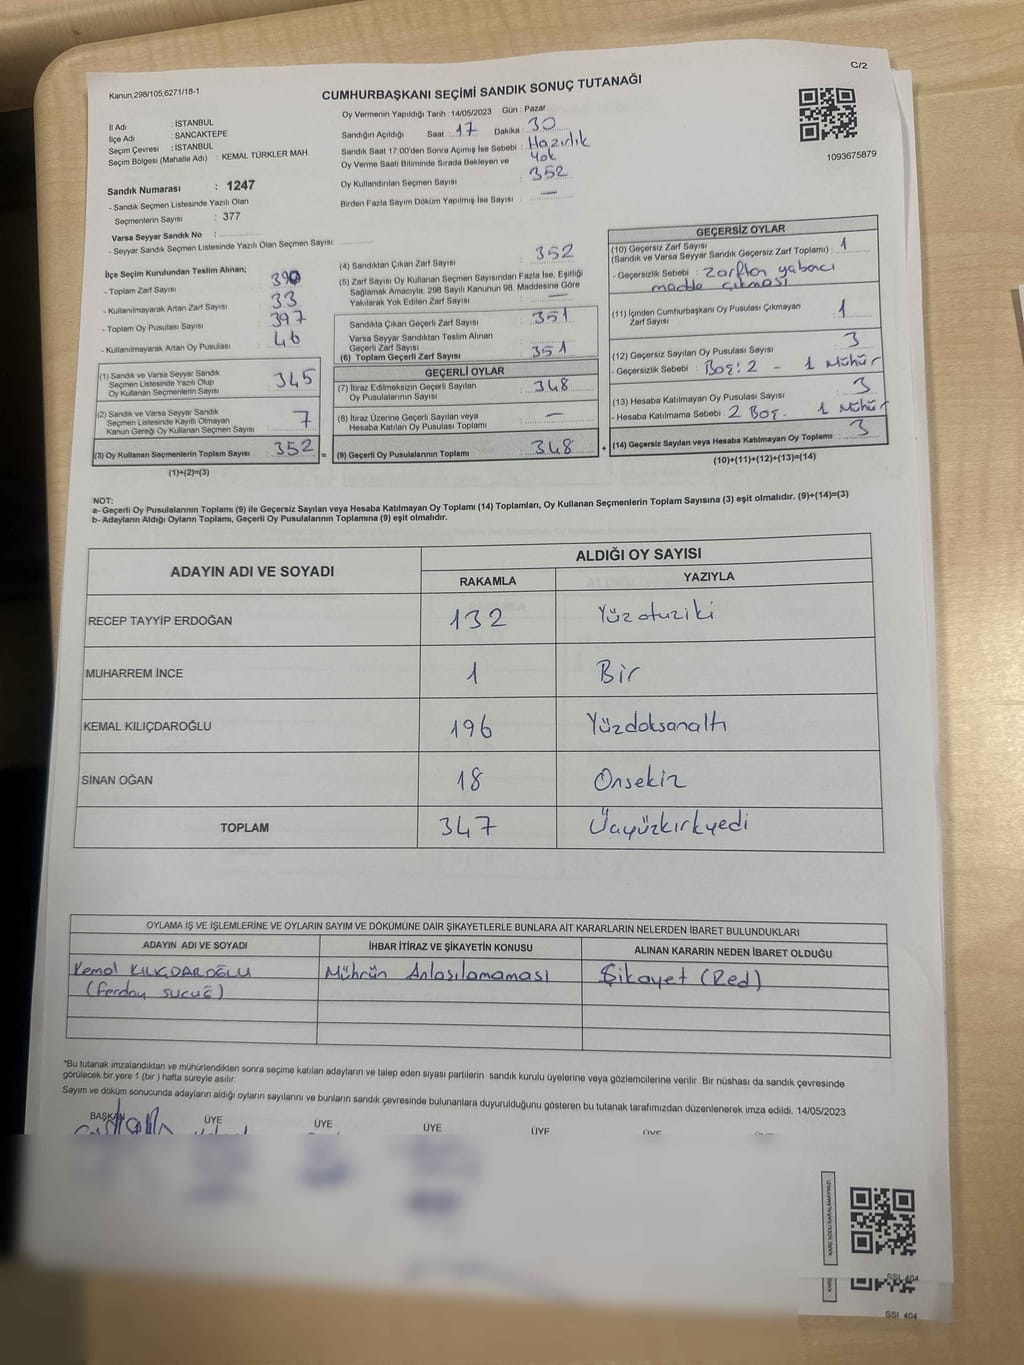 C/2
Kanun,298/105,6271/18-1
CUMHURBAŞKANI SEÇİMİ SANDIK SONUÇ TUTANAĞI
İl Adı : İSTANBUL
İlçe Adı : SANCAKTEPE
Seçim Çevresi : İSTANBUL
Seçim Bölgesi (Mahalle Adı) : KEMAL TÜRKLER MAH.
Sandık Numarası : 1247
- Sandık Seçmen Listesinde Yazılı Olan
Seçmenlerin Sayısı : 377
Varsa Seyyar Sandık No :
- Seyyar Sandık Seçmen Listesinde Yazılı Olan Seçmen Sayısı:
Oy Vermenin Yapıldığı Tarih : 14/05/2023 Gün : Pazar
Sandığın Açıldığı Saat 17 Dakika : 30
Sandık Saat 17:00'den Sonra Açımış İse Sebebi : Hazırlık
Oy Verme Saati Bitiminde Sırada Bekleyen ve Yok
Oy Kullandırılan Seçmen Sayısı : 352
Birden Fazla Sayım Döküm Yapılmış İse Sayısı : —
1093675879
İlçe Seçim Kurulundan Teslim Alınan;
- Toplam Zarf Sayısı : 390
- Kullanılmayarak Artan Zarf Sayısı : 33
- Toplam Oy Pusulası Sayısı : 397
- Kullanılmayarak Artan Oy Pusulası : 46
(1) Sandık ve Varsa Seyyar Sandık
Seçmen Listesinde Yazılı Olup
Oy Kullanan Seçmenlerin Sayısı : 345
(2) Sandık ve Varsa Seyyar Sandık
Seçmen Listesinde Kayıtlı Olmayan
Kanun Gereği Oy Kullanan Seçmen Sayısı : 7
(3) Oy Kullanan Seçmenlerin Toplam Sayısı : 352 =
(1)+(2)=(3)
(4) Sandıktan Çıkan Zarf Sayısı : 352
(5) Zarf Sayısı Oy Kullanan Seçmen Sayısından Fazla İse, Eşitliği
Sağlamak Amacıyla, 298 Sayılı Kanunun 98. Maddesine Göre
Yakılarak Yok Edilen Zarf Sayısı : —
Sandıkta Çıkan Geçerli Zarf Sayısı : 351
Varsa Seyyar Sandıktan Teslim Alınan
Geçerli Zarf Sayısı
(6) Toplam Geçerli Zarf Sayısı : 351
GEÇERLİ OYLAR
(7) İtiraz Edilmeksizin Geçerli Sayılan
Oy Pusulalarının Sayısı : 348
(8) İtiraz Üzerine Geçerli Sayılan veya
Hesaba Katılan Oy Pusulası Toplamı : —
(9) Geçerli Oy Pusulalarının Toplamı : 348 +
GEÇERSİZ OYLAR
(10) Geçersiz Zarf Sayısı
(Sandık ve Varsa Seyyar Sandık Geçersiz Zarf Toplamı) : 1
- Geçersizlik Sebebi : Zarftan yabancı
madde çıkması
(11) İçinden Cumhurbaşkanı Oy Pusulası Çıkmayan
Zarf Sayısı : 1
(12) Geçersiz Sayılan Oy Pusulası Sayısı : 3
- Geçersizlik Sebebi : Boş: 2 - 1 Mühür
(13) Hesaba Katılmayan Oy Pusulası Sayısı : 3
- Hesaba Katılmama Sebebi : 2 Boş. 1 Mühür
(14) Geçersiz Sayılan veya Hesaba Katılmayan Oy Toplamı : 3
(10)+(11)+(12)+(13)=(14)
NOT:
a- Geçerli Oy Pusulalarının Toplamı (9) ile Geçersiz Sayılan veya Hesaba Katılmayan Oy Toplamı (14) Toplamları, Oy Kullanan Seçmenlerin Toplam Sayısına (3) eşit olmalıdır. (9)+(14)=(3)
b- Adayların Aldığı Oyların Toplamı, Geçerli Oy Pusulalarının Toplamına (9) eşit olmalıdır.
ADAYIN ADI VE SOYADI ALDIĞI OY SAYISI
RAKAMLA YAZIYLA
RECEP TAYYİP ERDOĞAN 132 Yüzotuziki
MUHARREM İNCE 1 Bir
KEMAL KILIÇDAROĞLU 196 Yüzdoksanaltı
SİNAN OĞAN 18 Onsekiz
TOPLAM 347 Üçyüzkırkyedi
OYLAMA İŞ VE İŞLEMLERİNE VE OYLARIN SAYIM VE DÖKÜMÜNE DAİR ŞİKAYETLERLE BUNLARA AİT KARARLARIN NELERDEN İBARET BULUNDUKLARI
ADAYIN ADI VE SOYADI İHBAR İTİRAZ VE ŞİKAYETİN KONUSU ALINAN KARARIN NEDEN İBARET OLDUĞU
Kemal KILIÇDAROĞLU Mührün Anlaşılamaması Şikayet (Red)
*Bu tutanak imzalandıktan ve mühürlendikten sonra seçime katılan adayların ve talep eden siyasi partilerin sandık kurulu üyelerine veya gözlemcilerine verilir. Bir nüshası da sandık çevresinde
görülecek bir yere 1 (bir) hafta süreyle asılır.
Sayım ve döküm sonucunda adayların aldığı oyların sayılarını ve bunların sandık çevresinde bulunanlara duyurulduğunu gösteren bu tutanak tarafımızdan düzenlenerek imza edildi. 14/05/2023
BAŞKAN ÜYE ÜYE ÜYE ÜYE ÜYE
KARE KODU KARALAMAYINIZ!
SSI 404
SSI 404